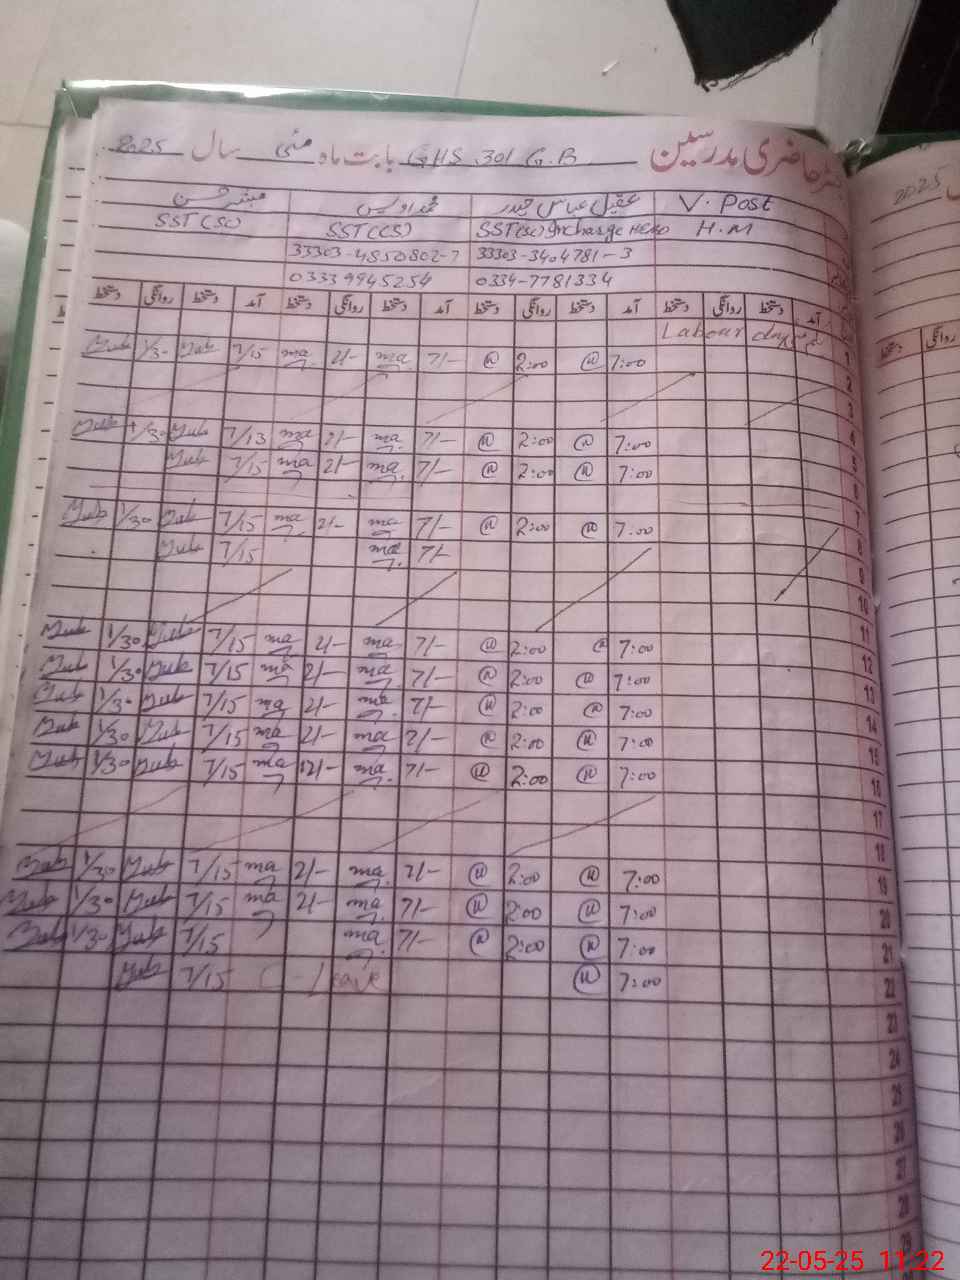 حاضری مدرسین GHS 301 G.B بابت ماہ مئی سال 2025
V. Post عقیل عباس حیدر محمد اویس مبشر حسن
H.M SST(SC) Incharge HEAD SST(CS) SST(SC)
33303-3404781-3 33303-4850802-7
0334-7781334 03339945254
آمد دستخط روانگی دستخط آمد دستخط روانگی دستخط آمد دستخط روانگی دستخط آمد دستخط روانگی دستخط
Labour day
1 7:00 2:00 7/- ma 2/- ma 7/15 Mub 1/30 Mub
2
3
4
5 7:00 2:00 7/- ma 2/- ma 7/15 Mub 1/30 Mub
6 7:00 2:00 7/- ma 2/- ma 7/15 Mub
7 7:00 2:00 7/- ma 2/- ma 7/15 Mub 1/30 Mub
8 7/- ma 7/15 Mub
9
10
11
12 7:00 2:00 7/- ma 2/- ma 7/15 Mub 1/30 Mub
13 7:00 2:00 7/- ma 2/- ma 7/15 Mub 1/30 Mub
14 7:00 2:00 7/- ma 2/- ma 7/15 Mub 1/30 Mub
15 7:00 2:00 ma 2/- ma 7/15 Mub 1/30 Mub
16 7:00 2:00 7/- ma 2/- ma 7/15 Mub 1/30 Mub
17
18
19 7:00 2:00 7/- ma 2/- ma 7/15 Mub 1/30 Mub
20 7:00 2:00 7/- ma 2/- ma 7/15 Mub 1/30 Mub
21 7:00 2:00 7/- ma 7/15 Mub 1/30 Mub
22 7:00 C-Leave 7/15 Mub
23
24
25
26
27
28
29
2025
روانگی دستخط
22-05-25 11:22